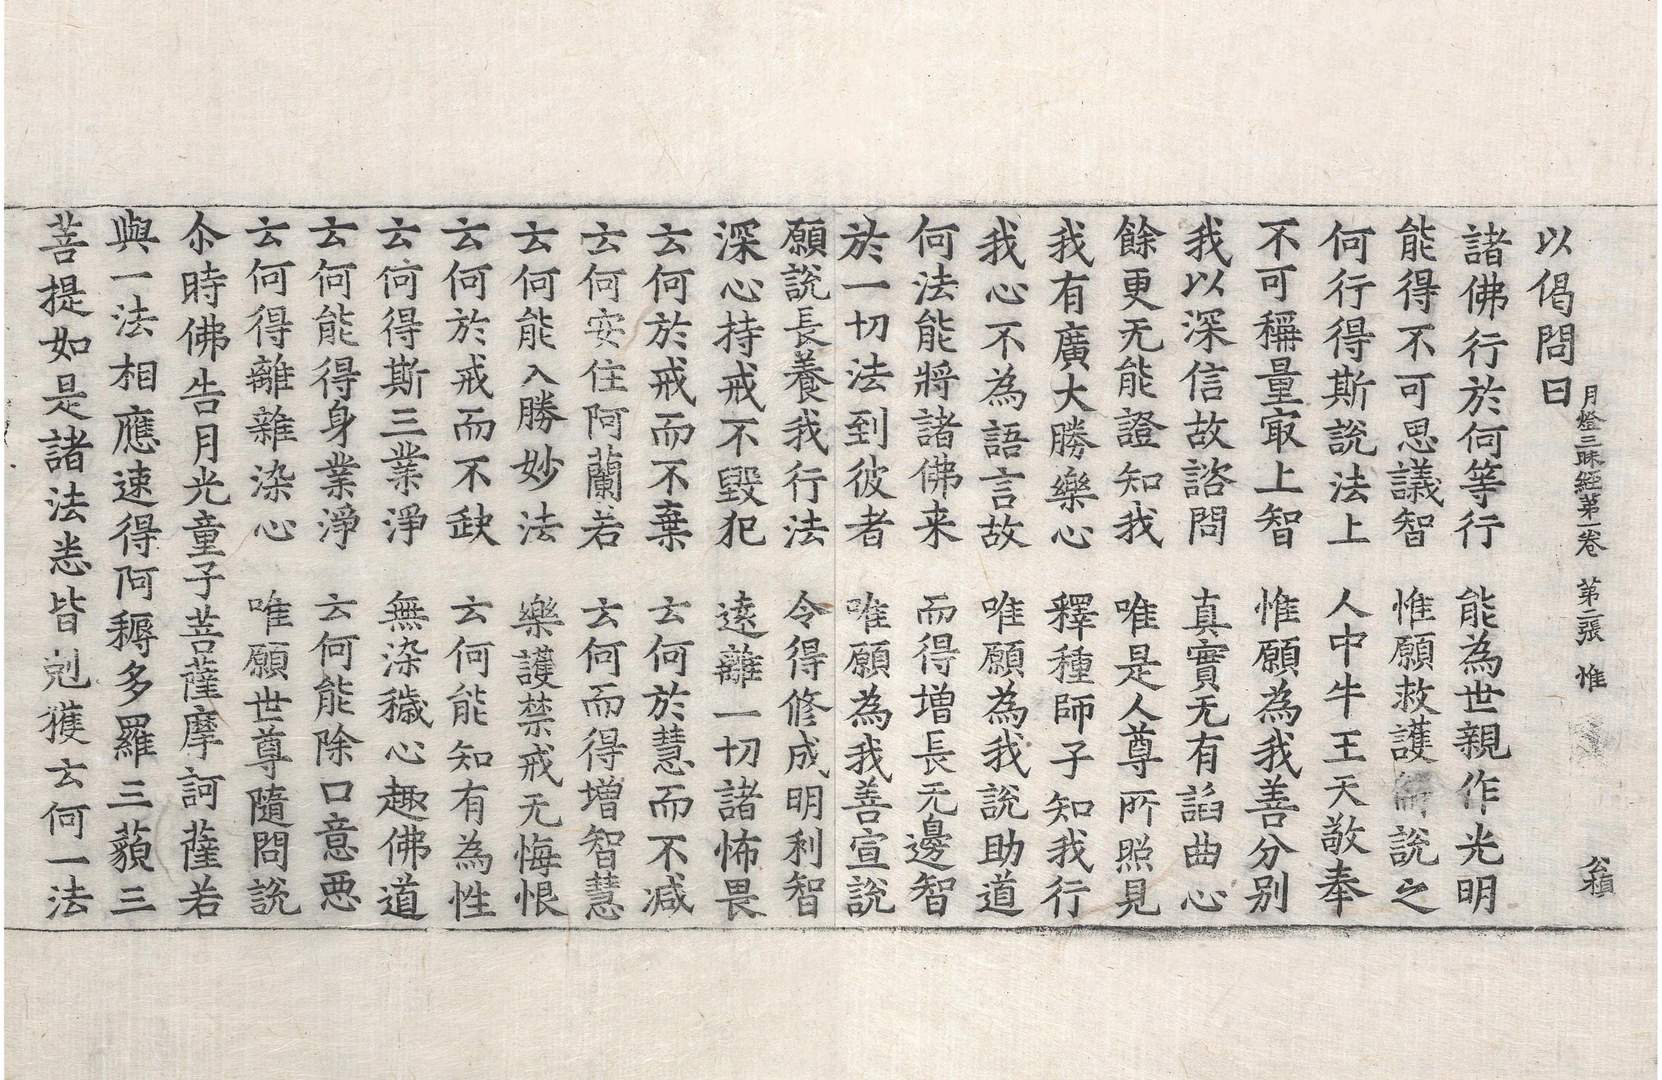 月燈三昧經第一卷 第二張 惟
公稹
以偈問曰
諸佛行於何等行 能為世親作光明
能得不可思議智 惟願救護說之
何行得斯說法上 人中牛王天敬奉
不可稱量㝡上智 惟願為我善分別
我以深信故諮問 真實无有諂曲心
餘更无能證知我 唯是人尊所照見
我有廣大勝樂心 釋種師子知我行
我心不為語言故 唯願為我說助道
何法能將諸佛来 而得增長无邊智
於一切法到彼者 唯願為我善宣說
願說長養我行法 令得修成明利智
深心持戒不毀犯 遠離一切諸怖畏
云何於戒而不棄 云何於慧而不減
云何安住阿蘭若 云何而得增智慧
云何能入勝妙法 樂護禁戒无悔恨
云何於戒而不缺 云何能知有為性
云何得斯三業淨 無染穢心趣佛道
云何能得身業淨 云何能除口意惡
云何得離雜染心 唯願世尊隨問說
尒時佛告月光童子菩薩摩訶薩若
與一法相應速得阿耨多羅三藐三
菩提如是諸法悉皆剋獲云何一法